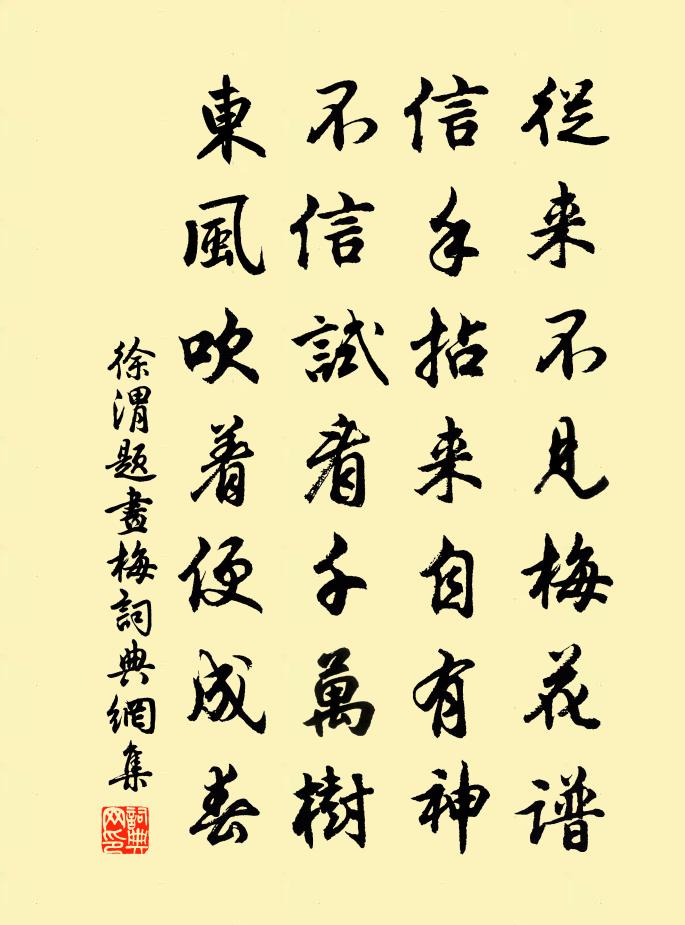 從来不見梅花譜
信手拈来自有神
不信試看千萬樹
東風吹着便成春
徐渭題畫梅詞典網集
詞典网印